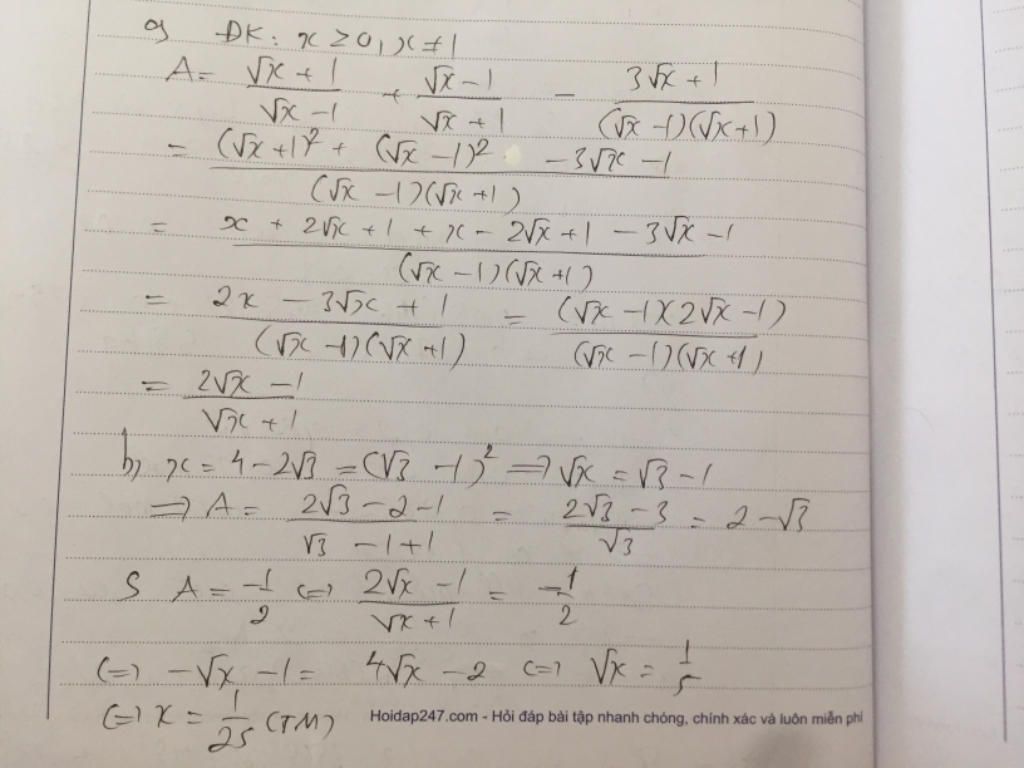 a) ĐK: x ≥ 0, x ≠ 1
A = (√x + 1)/(√x - 1) + (√x - 1)/(√x + 1) - (3√x + 1)/((√x - 1)(√x + 1))
= ((√x + 1)² + (√x - 1)² - 3√x - 1)/((√x - 1)(√x + 1))
= (x + 2√x + 1 + x - 2√x + 1 - 3√x - 1)/((√x - 1)(√x + 1))
= (2x - 3√x + 1)/((√x - 1)(√x + 1)) = ((√x - 1)(2√x - 1))/((√x - 1)(√x + 1))
= (2√x - 1)/(√x + 1)
b) x = 4 - 2√3 = (√3 - 1)² => √x = √3 - 1
=> A = (2√3 - 2 - 1)/(√3 - 1 + 1) = (2√3 - 3)/√3 = 2 - √3
A = -1/2 <=> (2√x - 1)/(√x + 1) = -1/2
<=> -√x - 1 = 4√x - 2 <=> √x = 1/5
<=> x = 1/25 (TM)
Hoidap247.com - Hỏi đáp bài tập nhanh chóng, chính xác và luôn miễn phí